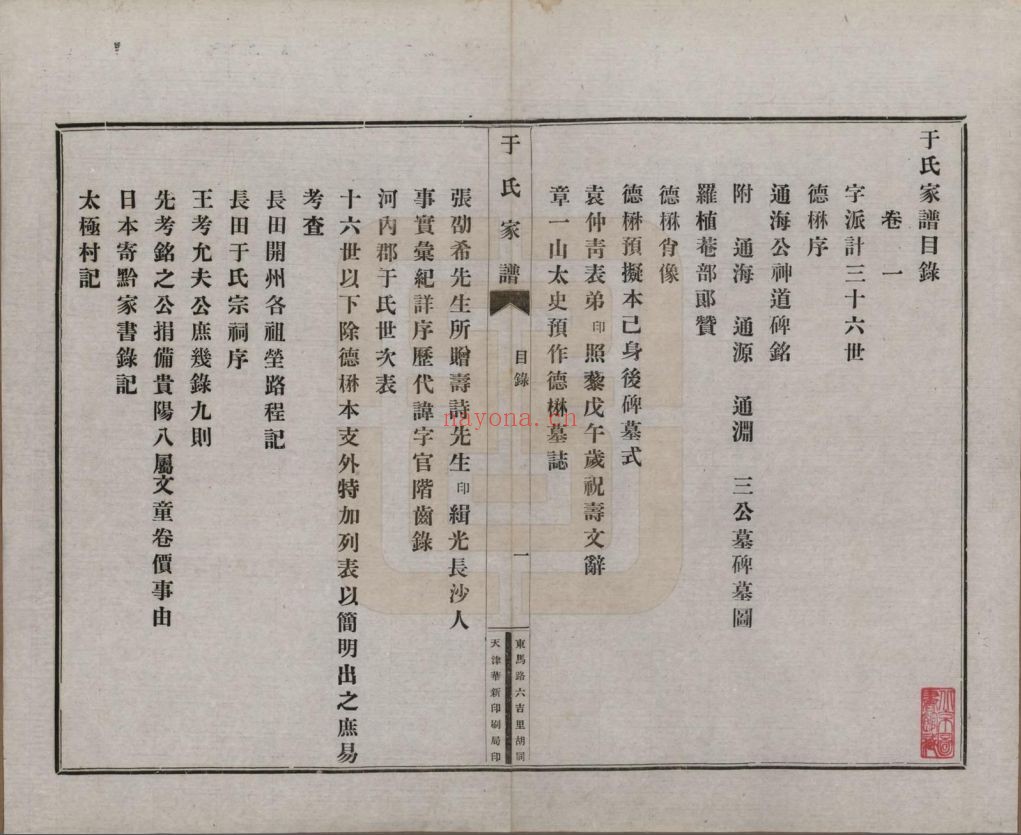 于氏家譜目錄
卷一
字派計三十六世
德楙序
通海公神道碑銘
附 通海 通源 通淵 三公墓碑墓圖
羅植菴部郞贊
德楙肖像
德楙預擬本己身後碑墓式
袁仲靑表弟印照藜戊午歲祝壽文辭
章一山太史預作德楙墓誌
于氏家譜 目錄 一
東馬路六吉里胡同
天津華新印刷局印
張劭希先生所贈壽詩先生印緝光長沙人
事實彙紀詳序歷代諱字官階齒錄
河內郡于氏世次表
十六世以下除德楙本支外特加列表以簡明出之庶易
考查
長田開州各祖塋路程記
長田于氏宗祠序
王考允夫公庶幾錄九則
先考銘之公捐備貴陽八屬文童卷價事由
日本寄黔家書錄記
太極村記
nayona.cn